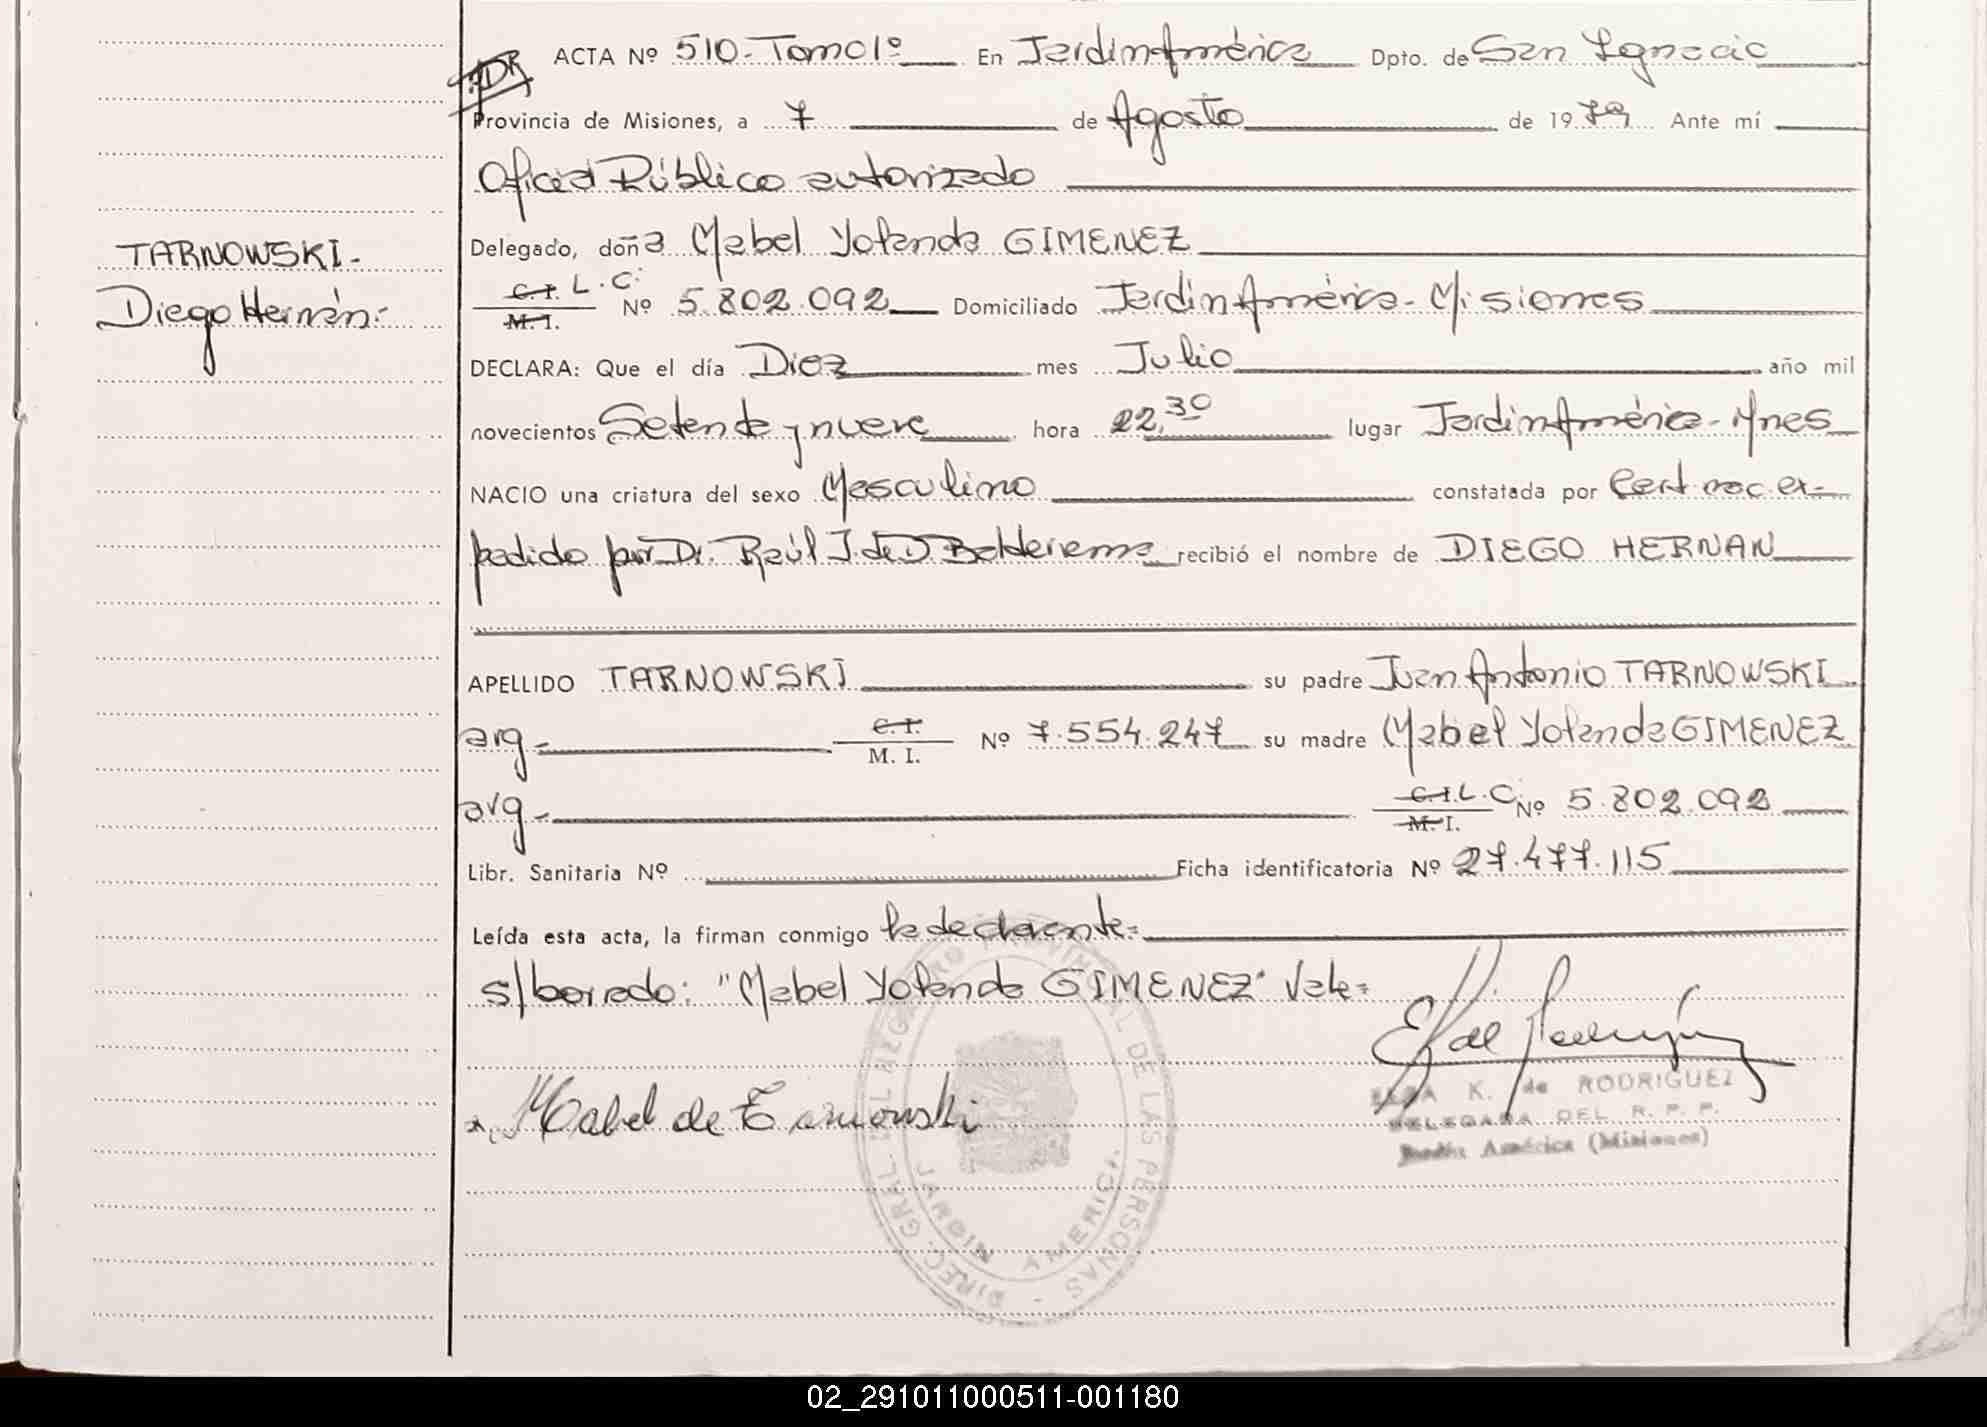 ACTA Nº 510-Tomo 1º En Jardin América Dpto. de San Ignacio
Provincia de Misiones, a 7 de Agosto de 1979 Ante mí
Oficial Público autorizado
TARNOWSKI-
Delegado, doña Mabel Yolanda GIMENEZ
Diego Hernán.-
C.I. L.C. M.I. Nº 5.802.092 Domiciliado Jardin América - Misiones
DECLARA: Que el día Diez mes Julio año mil
novecientos Setenta y nueve hora 22,30 lugar Jardin América - Mnes
NACIO una criatura del sexo Masculino constatada por Cert. nac. ex-
pedido por Dr. Raúl J. de D. Balderrama recibió el nombre de DIEGO HERNAN
APELLIDO TARNOWSKI su padre Juan Antonio TARNOWSKI
arg- C.I. M. I. Nº 7.554.247 su madre Mabel Yolanda GIMENEZ
arg- C.I. L.C. M.I. Nº 5.802.092
Libr. Sanitaria Nº Ficha identificatoria Nº 27.477.115
Leída esta acta, la firman conmigo la declarante=
s/borrado: "Mabel Yolanda GIMENEZ" Vale=
Mabel de Tarnowski
ELSA K. de RODRIGUEZ
DELEGADA DEL R. P. P.
Jardín América (Misiones)
DIRECC. GRAL. DEL REGISTRO PROVINCIAL DE LAS PERSONAS -
JARDIN AMERICA
02_291011000511-001180